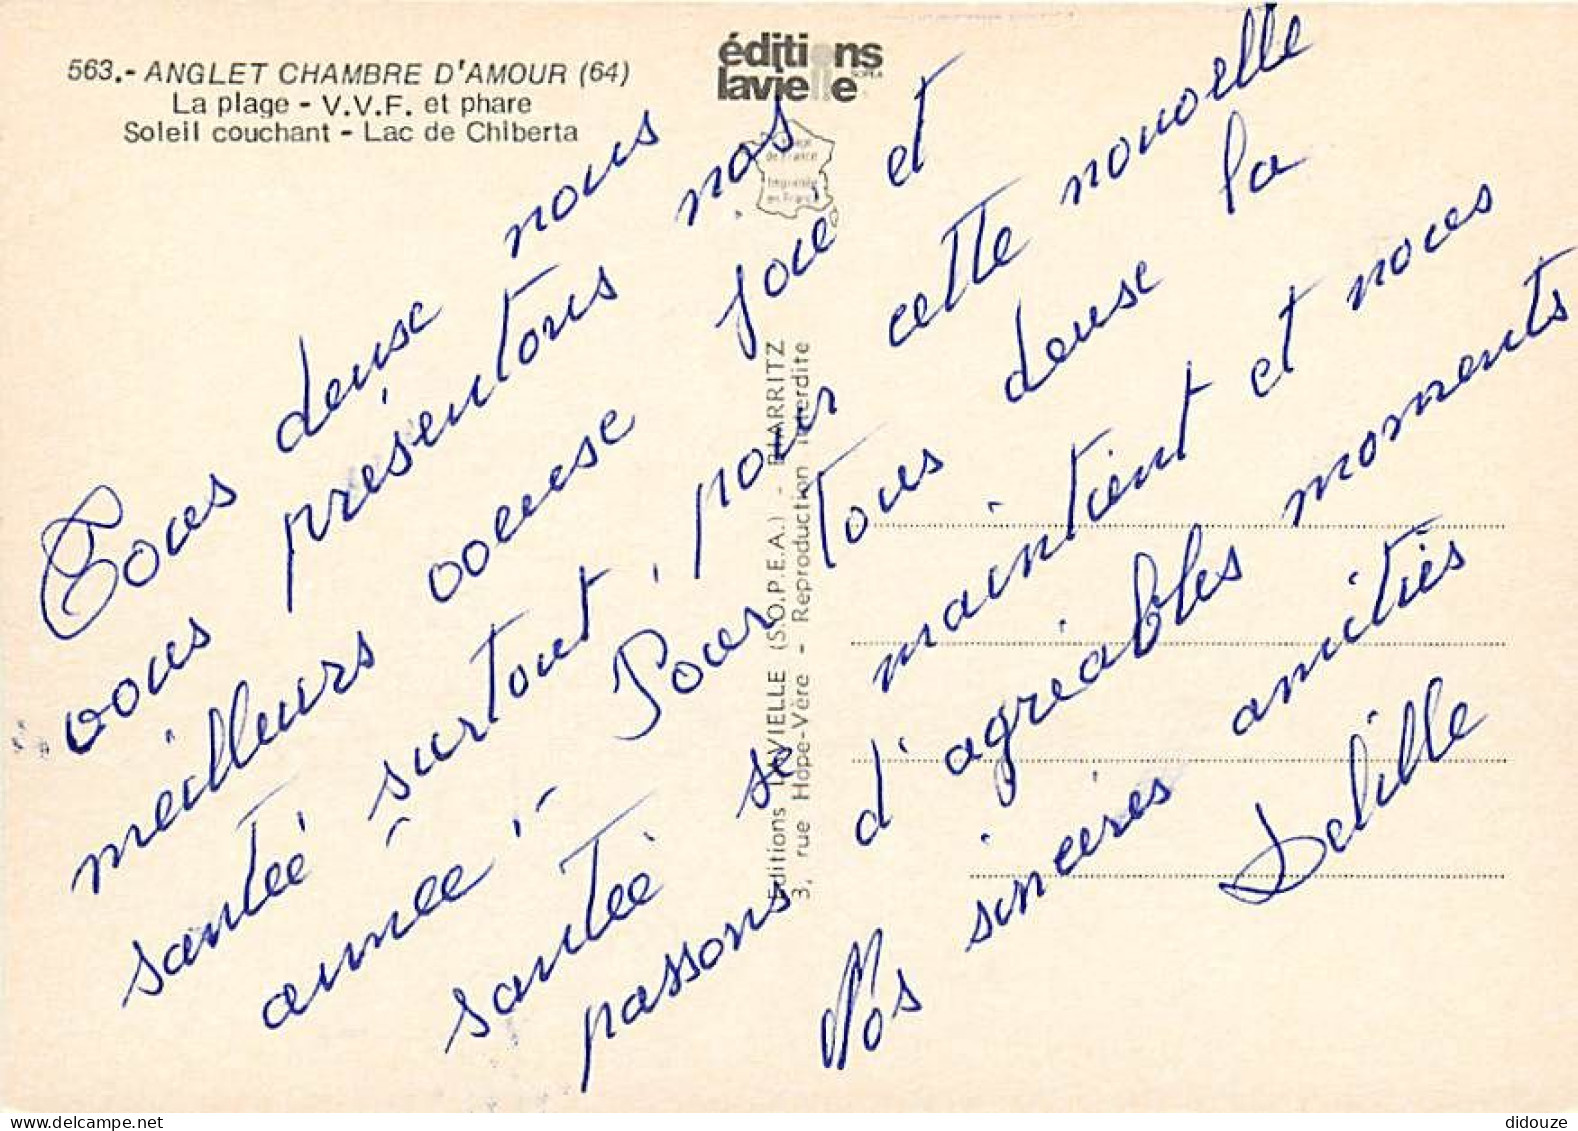 563.- ANGLET CHAMBRE D'AMOUR (64)
La plage - V.V.F. et phare
Soleil couchant - Lac de Chiberta
éditions
lavielle
SOPEA
Image
de France
Imprimée
en France
Editions LAVIELLE (S.O.P.E.A.) - BIARRITZ
3, rue Hope-Vère - Reproduction interdite
Tous deux nous
vous présentons nos
meilleurs voeux joie et
santé surtout, pour cette nouvelle
année. - Pour tous deux la
santé se maintient et nous
passons d'agréables moments
Nos sincères amitiés
Delille
didouze